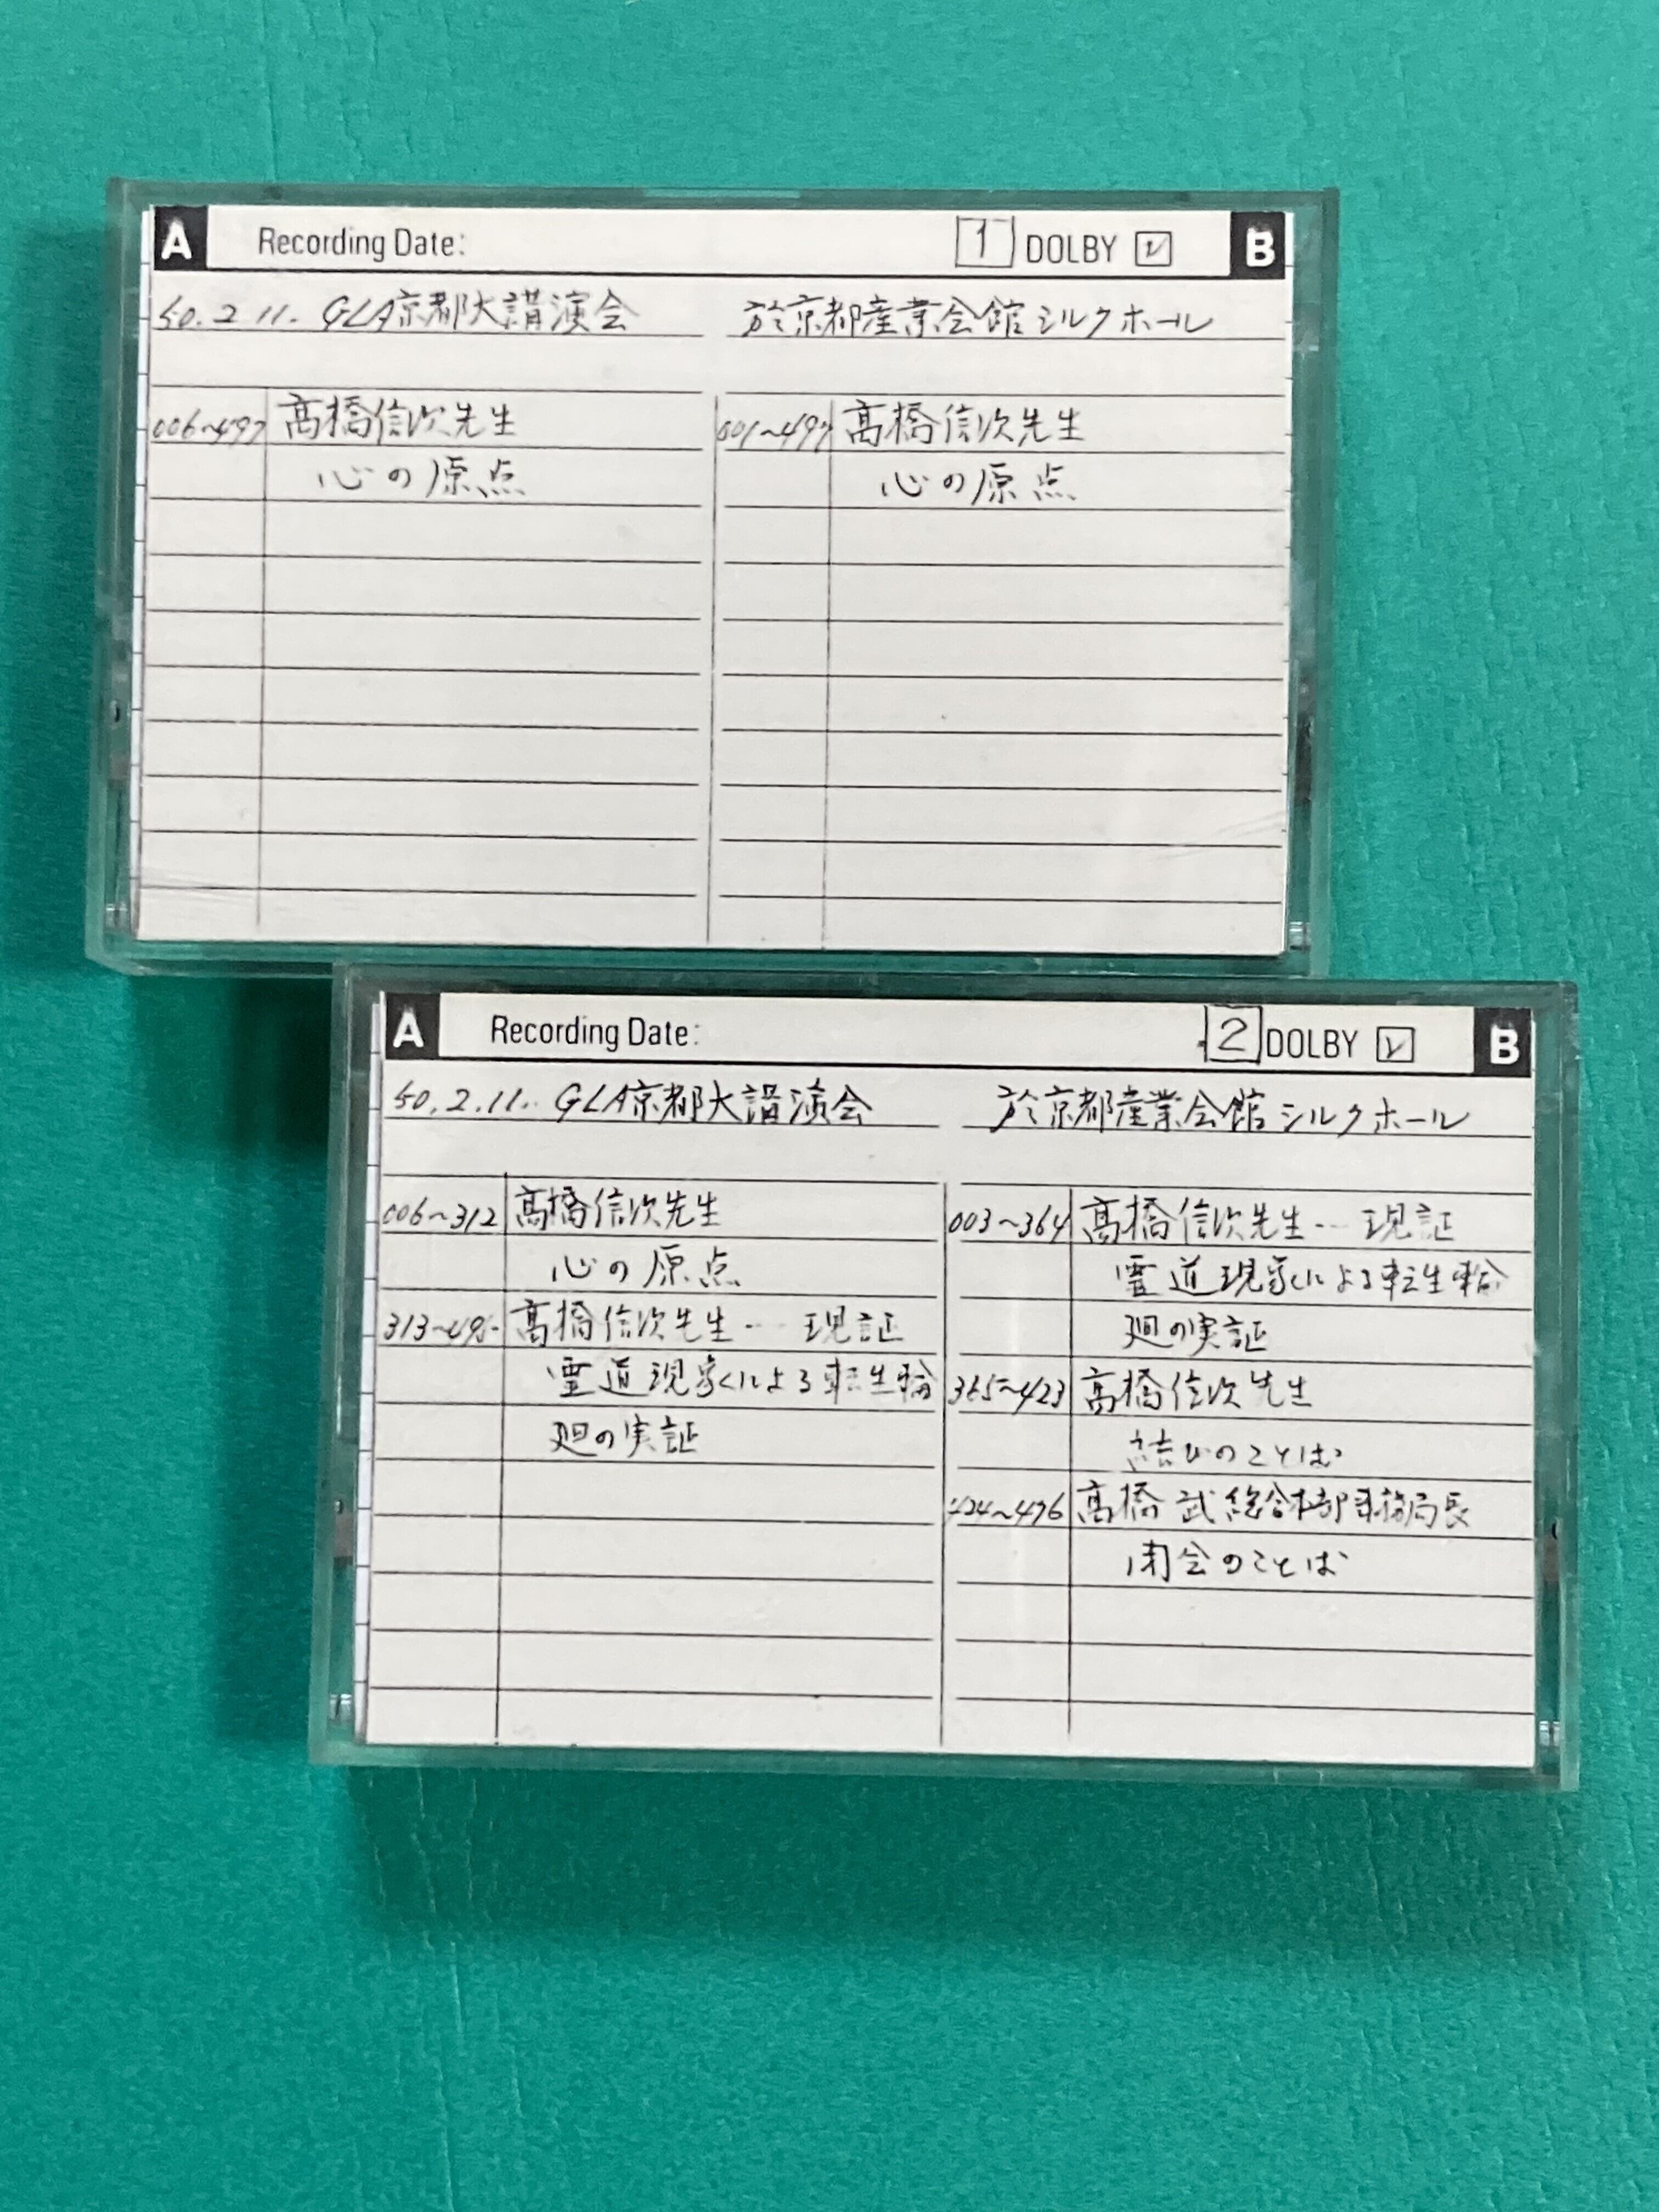 A Recording Date: 1 DOLBY B
50.2.11. GLA京都大講演会 於京都産業会館シルクホール
006~497 高橋信次先生
心の原点
001~497 高橋信次先生
心の原点
A Recording Date: 2 DOLBY B
50.2.11. GLA京都大講演会 於京都産業会館シルクホール
006~312 高橋信次先生
心の原点
313~ 高橋信次先生… 現証
霊道現象による転生輪
廻の実証
003~364 高橋信次先生… 現証
霊道現象による転生輪
廻の実証
365~423 高橋信次先生
結びのことば
424~476 高橋 武総合本部事務局長
閉会のことば